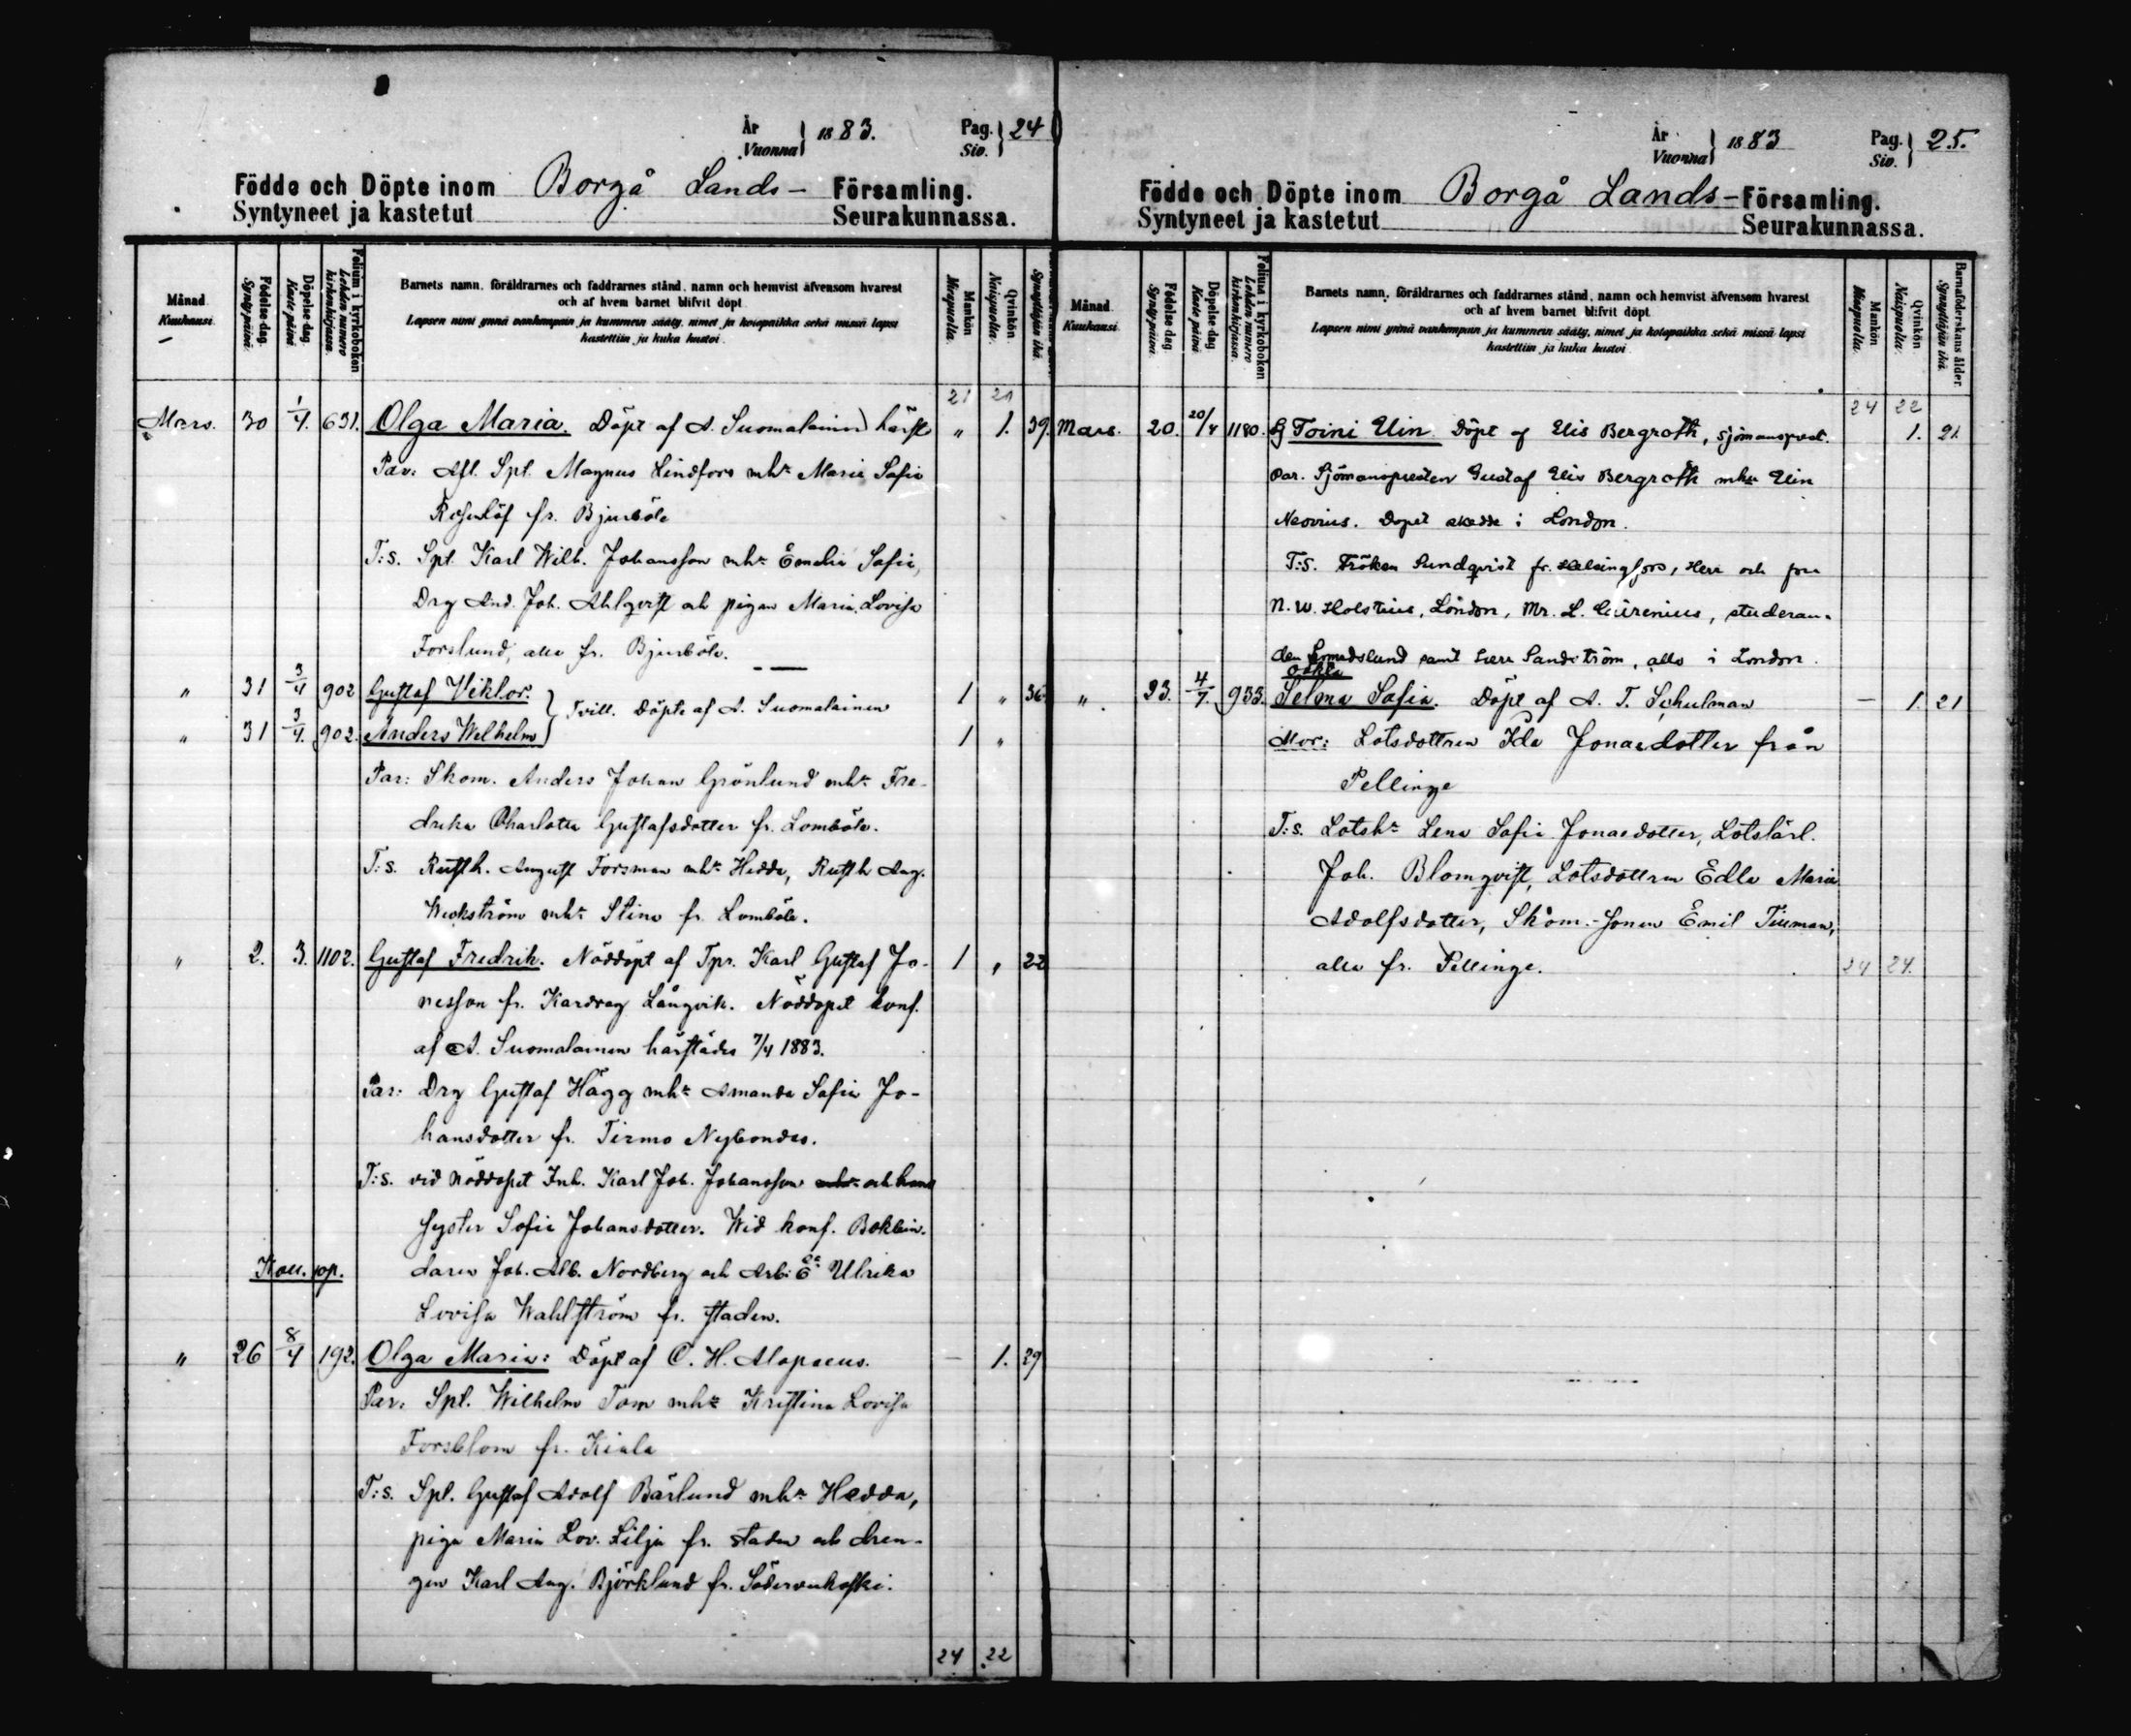 År
Vuonna } 1883.
Pag.
Siv. } 24
Födde och Döpte inom Borgå Lands- Församling.
Syntyneet ja kastetut Seurakunnassa.
Månad. Kuukausi.
Födelse-dag. Synty-päivä.
Döpelse-dag. Kaste-päivä.
Folium i kyrkoboken Lehden numero kirkonkirjassa.
Barnets namn, föräldrarnes och faddrarnes stånd, namn och hemvist äfvensom hvarest
och af hvem barnet blifvit döpt.
Lapsen nimi ynnä vanhempain ja kummein sääty, nimet ja kotopaikka sekä missä lapsi
kastettiin ja kuka kastoi.
Mankön Miespuolia.
Qvinkön Naispuolia.
Synnyttäjän ikä.
21 20
Mars. 30 1/4. 631. Olga Maria. Döpt af A. Suomalainen härst. " 1. 39.
Par: Afl. Spt. Magnus Lindfors mhr Maria Sofia
Rosenlöf fr. Bjurböle
T:s. Spt. Karl Wilh. Johansson mhr Emelia Sofia,
Drg And. Joh. Ahlqvist och pigan Maria Lovisa
Forslund, alla fr. Bjurböle.
" 31 3/4 902 Gustaf Viktor. } Tvill. Döpte af A. Suomalainen 1 " 36
" 31 3/4. 902. Anders Wilhelm 1 "
Par: Skom. Anders Johan Grönlund mhr Fre-
drika Charlotta Gustafsdotter fr. Lomböle.
T:s. Rusth. August Forsman mhr Hedda, Rusth Aug.
Weckström mhr Stina fr. Lomböle.
" 2. 3. 1102. Gustaf Fredrik. Nöddöpt af Tpr. Karl Gustaf Jo- 1 " 22
nesson fr. Kardrag Långvik. Nöddopet konf.
af A. Suomalainen härstädes 7/4 1883.
Par: Drg Gustaf Hägg mhr Amanda Sofia Jo-
hansdotter fr. Tirmo Nybondes.
T:s. vid nöddopet Inh. Karl Joh. Johansson och hans
syster Sofia Johansdotter. Wid konf. Bokbin-
Kou. sog. daren Joh. Alb. Nordberg och Arb: Ulrika
Lovisa Wahlström fr. staden.
" 26 8/4 192. Olga Maria: Döpt af C. H. Alopaeus. — 1. 29
Par. Spt. Wilhelm Tom mhr Kristina Lovisa
Forsblom fr. Kiala
T:s. Spt. Gustaf Adolf Bärlund mhr Hedda,
piga Maria Lov. Lilja fr. staden och dren-
gen Karl Aug. Björklund fr. Södervekoski.
24 22
År
Vuonna } 1883
Pag.
Siv. } 25.
Födde och Döpte inom Borgå Lands- Församling.
Syntyneet ja kastetut Seurakunnassa.
Månad. Kuukausi.
Födelse-dag. Synty-päivä.
Döpelse-dag. Kaste-päivä.
Folium i kyrkoboken Lehden numero kirkonkirjassa.
Barnets namn, föräldrarnes och faddrarnes stånd, namn och hemvist äfvensom hvarest
och af hvem barnet blifvit döpt.
Lapsen nimi ynnä vanhempain ja kummein sääty, nimet ja kotopaikka sekä missä lapsi
kastettiin ja kuka kastoi.
Mankön Miespuolia.
Qvinkön Naispuolia.
Barnaföderskans ålder. Synnyttäjän ikä.
24 22
Mars. 20. 20/4 1180. Toini Elin. Döpt af Elis Bergroth, sjömanspred. 1. 21.
Par. Sjömanspresten Gustaf Elis Bergroth mhr Elin
Neovius. Dopet skedde i London.
T:S. Fröken Sundqvist fr. Helsingfors, Herr och fru
N. W. Holstius, London, Mr. L. Laurenius, studeran-
den samt Herr Sandström, alla i London.
oäkta
" 23. 4/7. 933. Selma Sofia. Döpt af A. T. Schulman — 1. 21
Mor: Lotsdottren Ida Jonaedotter från
Pellinge
T:s. Lotshr Lena Sofia Jonaedotter, Lotslärl.
Joh. Blomqvist, Lotsdottren Edla Maria
Adolfsdotter, Skom.-sonen Emil Tiuman,
alla fr. Pellinge. 24 24.